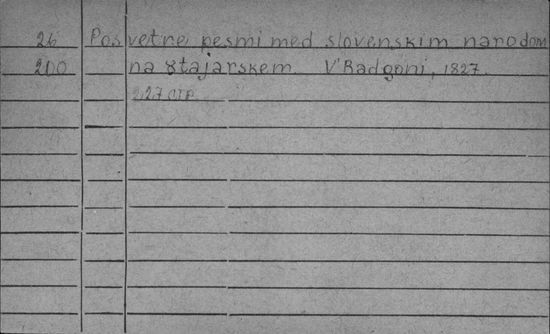 26 Posvetne pesmi med slovenskim narodom
200 na Štajarskem. V'Radgoni, 1827.
227 стр.